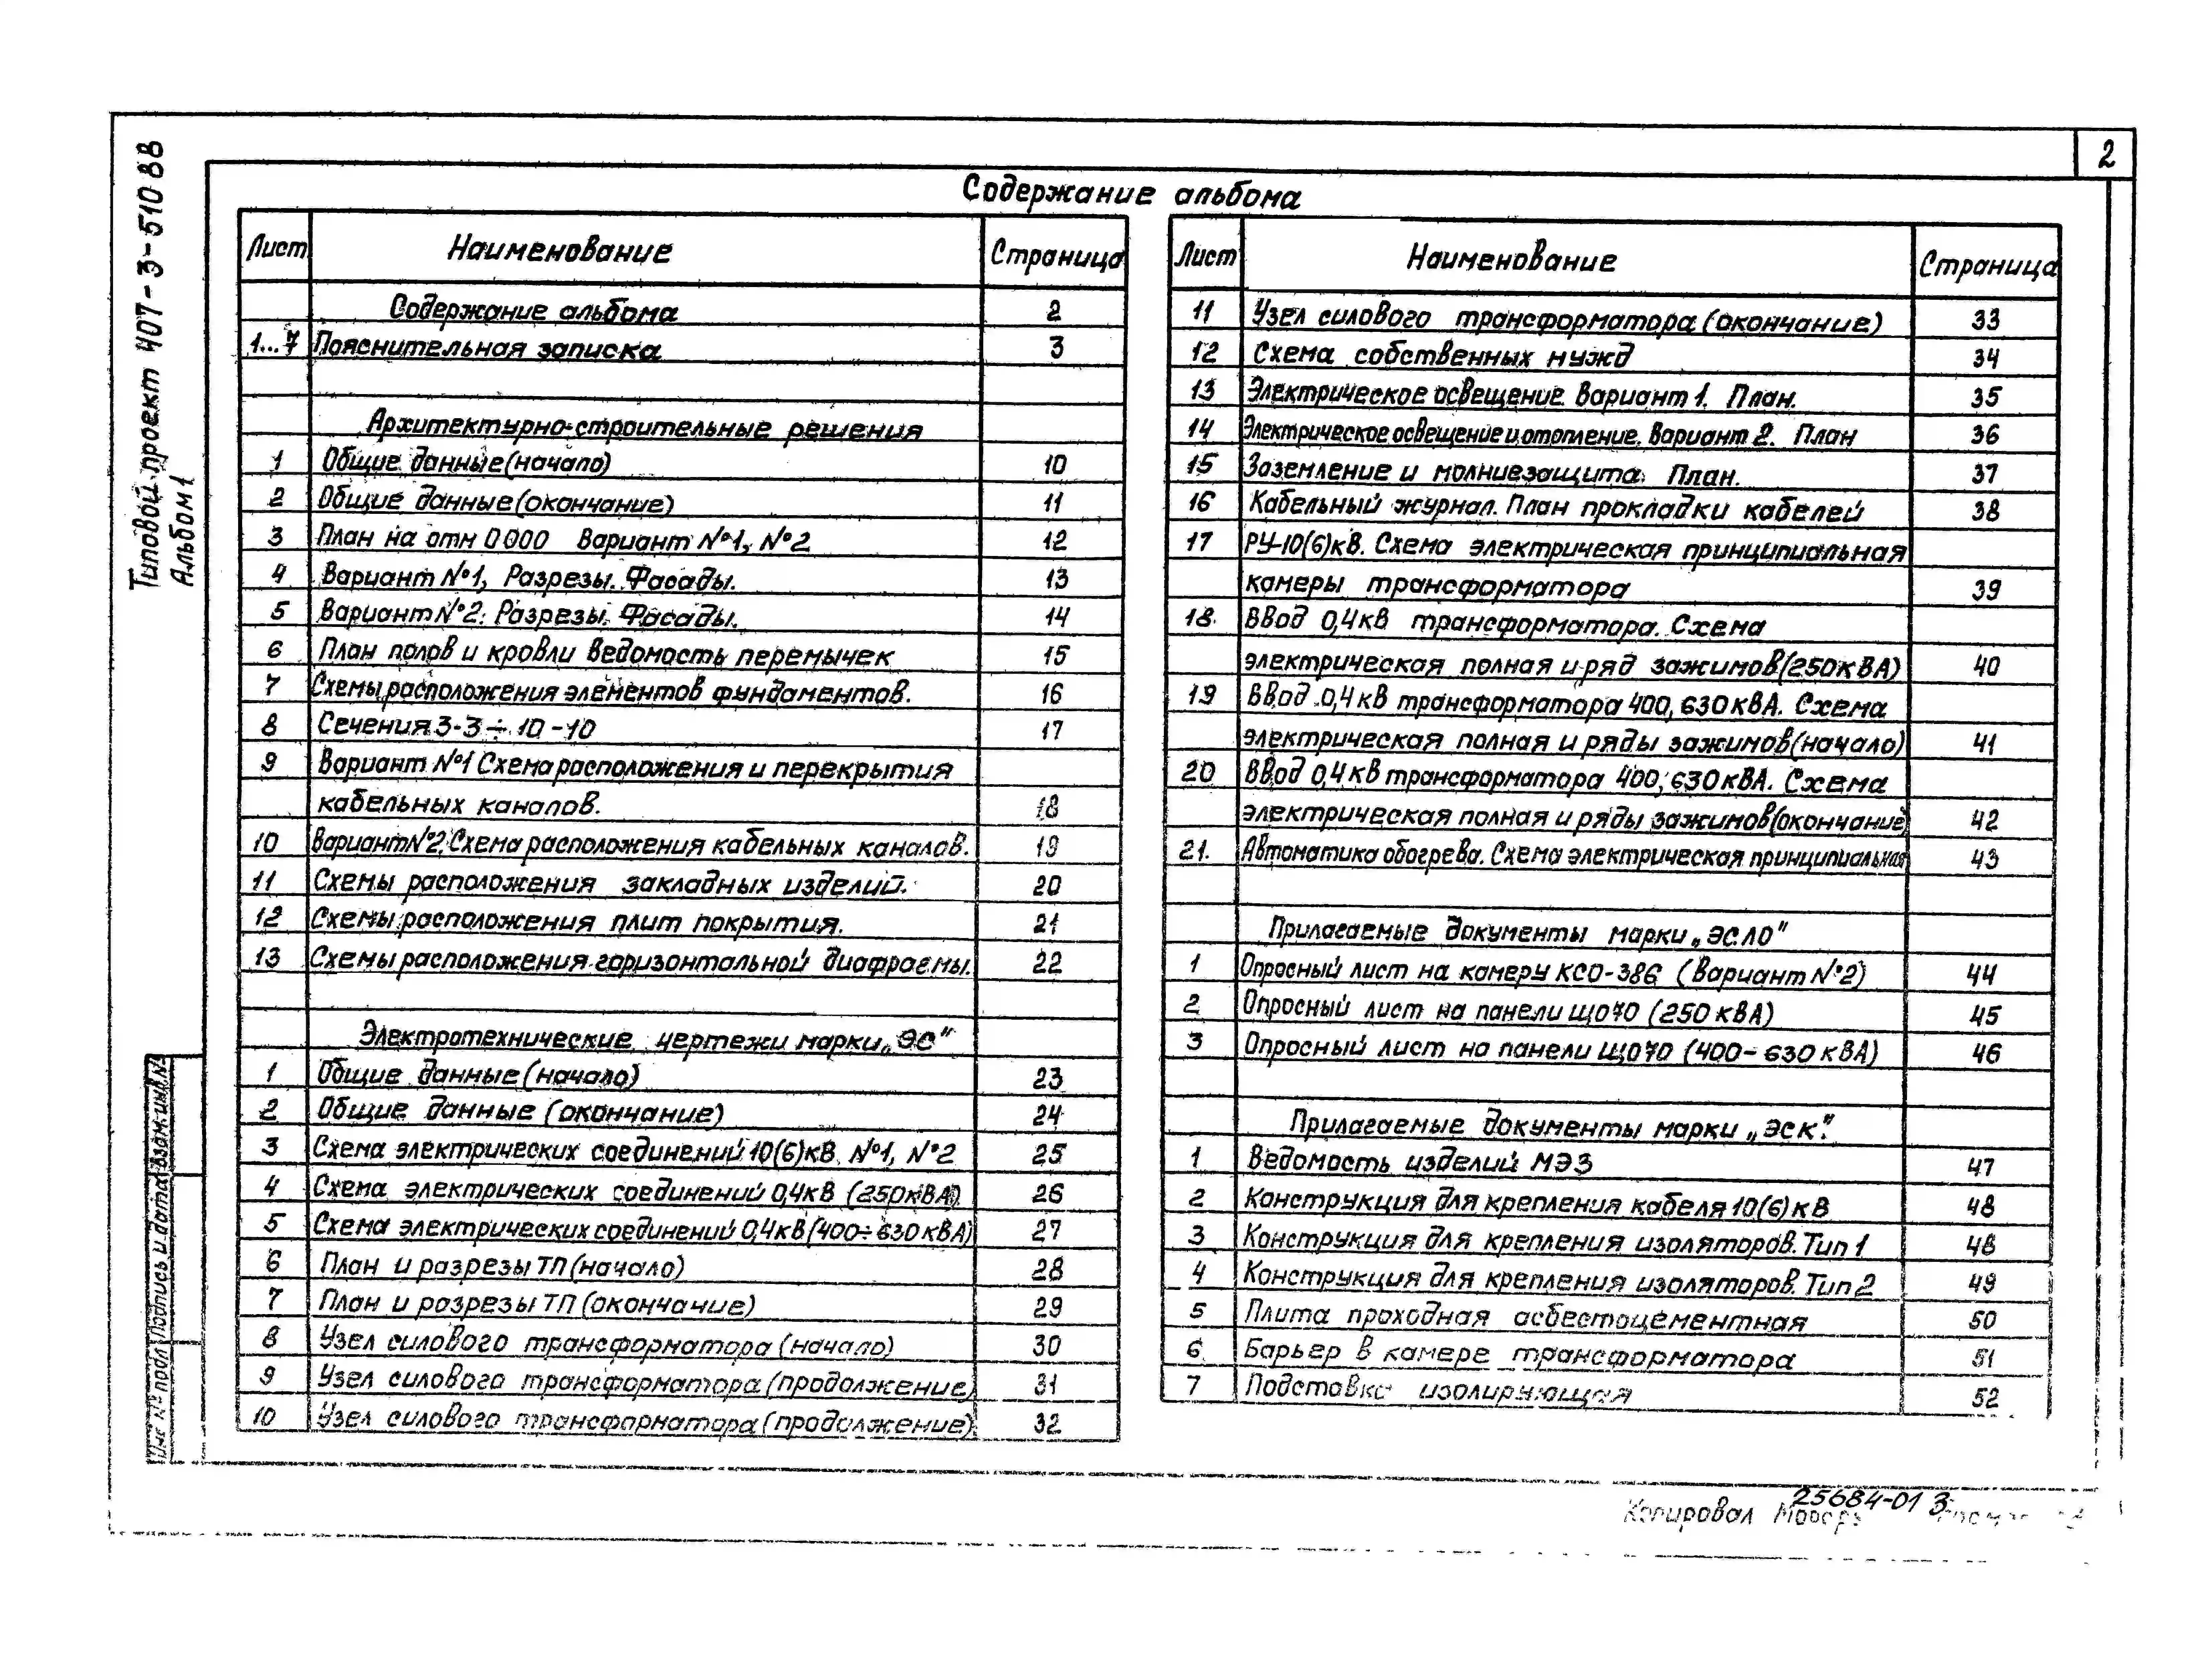 2
Типовой проект 407-3-510 88
Альбом 1
Содержание альбома
Лист Наименование Страница
Содержание альбома 2
1...7 Пояснительная записка 3
Архитектурно-строительные решения
1 Общие данные (начало) 10
2 Общие данные (окончание) 11
3 План на отм 0 000 Вариант №1, №2 12
4 Вариант №1, Разрезы. Фасады. 13
5 Вариант №2. Разрезы. Фасады. 14
6 План полов и кровли Ведомость перемычек 15
7 Схемы расположения элементов фундаментов. 16
8 Сечения 3-3 ÷ 10-10 17
9 Вариант №1 Схема расположения и перекрытия
кабельных каналов. 18
10 Вариант №2. Схема расположения кабельных каналов. 19
11 Схемы расположения закладных изделий. 20
12 Схемы расположения плит покрытия. 21
13 Схемы расположения горизонтальной диафрагмы. 22
Электротехнические чертежи марки „ЭС"
1 Общие данные (начало) 23
2 Общие данные (окончание) 24
3 Схема электрических соединений 10(6)кВ №1, №2 25
4 Схема электрических соединений 0,4кВ (250кВА) 26
5 Схема электрических соединений 0,4кВ (400÷630кВА) 27
6 План и разрезы ТП (начало) 28
7 План и разрезы ТП (окончание) 29
8 Узел силового трансформатора (начало) 30
9 Узел силового трансформатора (продолжение) 31
10 Узел силового трансформатора (продолжение) 32
Лист Наименование Страница
11 Узел силового трансформатора (окончание) 33
12 Схема собственных нужд 34
13 Электрическое освещение Вариант 1. План. 35
14 Электрическое освещение и отопление. Вариант 2. План 36
15 Заземление и молниезащита. План. 37
16 Кабельный журнал. План прокладки кабелей 38
17 РУ-10(6)кВ. Схема электрическая принципиальная
камеры трансформатора 39
18. Ввод 0,4кВ трансформатора. Схема
электрическая полная и ряд зажимов (250кВА) 40
19 Ввод 0,4кВ трансформатора 400, 630кВА. Схема
электрическая полная и ряды зажимов (начало) 41
20 Ввод 0,4кВ трансформатора 400, 630кВА. Схема
электрическая полная и ряды зажимов (окончание) 42
21. Автоматика обогрева. Схема электрическая принципиальная 43
Прилагаемые документы марки „ЭСЛО"
1 Опросный лист на камеру КСО-386 (Вариант №2) 44
2 Опросный лист на панели ЩО70 (250кВА) 45
3 Опросный лист на панели ЩО70 (400-630кВА) 46
Прилагаемые документы марки „ЭСК".
1 Ведомость изделий МЭЗ 47
2 Конструкция для крепления кабеля 10(6)кВ 48
3 Конструкция для крепления изоляторов. Тип 1 48
4 Конструкция для крепления изоляторов. Тип 2 49
5 Плита проходная асбестоцементная 50
6 Барьер в камере трансформатора 51
7 Подставка изолирующая 52
Инв № подл Подпись и дата Взам. инв.№
25684-01 3
Копировал